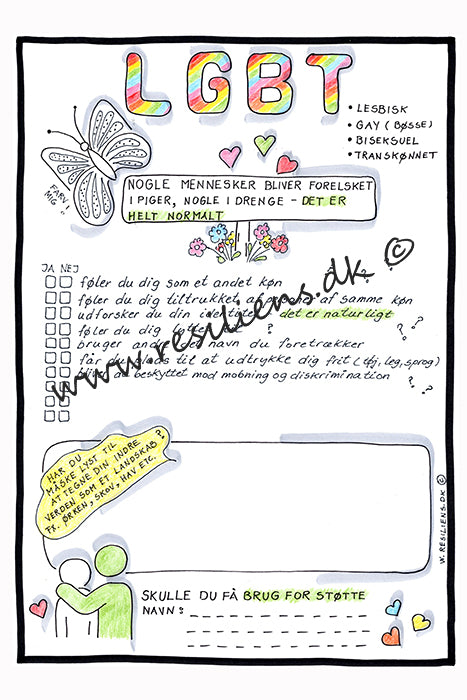 LGBT
• LESBISK
• GAY (BØSSE)
• BISEKSUEL
• TRANSKØNNET
FARV
MIG
NOGLE MENNESKER BLIVER FORELSKET
I PIGER, NOGLE I DRENGE - DET ER
HELT NORMALT
JA NEJ
føler du dig som et andet køn
føler du dig tiltrukket af af samme køn
udforsker du din identitet det er naturligt
føler du dig ?
bruger andre det navn du foretrækker ? ?
får du plads til at udtrykke dig frit (tøj, leg, sprog) ?
bliver du beskyttet mod mobning og diskrimination ? ?
www.resiliens.dk ©
HAR DU
MÅSKE LYST TIL
AT TEGNE DIN INDRE
VERDEN SOM ET LANDSKAB ?
FX. ØRKEN, SKOV, HAV ETC.
W. RESILIENS.DK ©
SKULLE DU FÅ BRUG FOR STØTTE
NAVN :